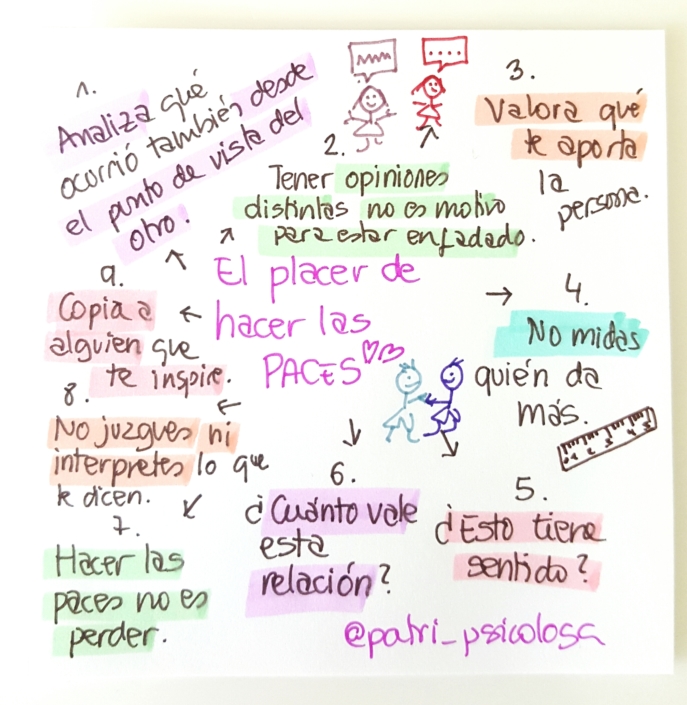 1.
Analiza qué
ocurrió también desde
el punto de vista del
otro.
2.
Tener opiniones
distintas no es motivo
para estar enfadado.
3.
Valora qué
te aporta
la
persona.
El placer de
hacer las
PACES
4.
No midas
quién da
más.
5.
¿Esto tiene
sentido?
6.
¿Cuánto vale
esta
relación?
7.
Hacer las
paces no es
perder.
8.
No juzgues ni
interpretes lo que
te dicen.
9.
Copia a
alguien que
te inspire.
@patri_psicologa